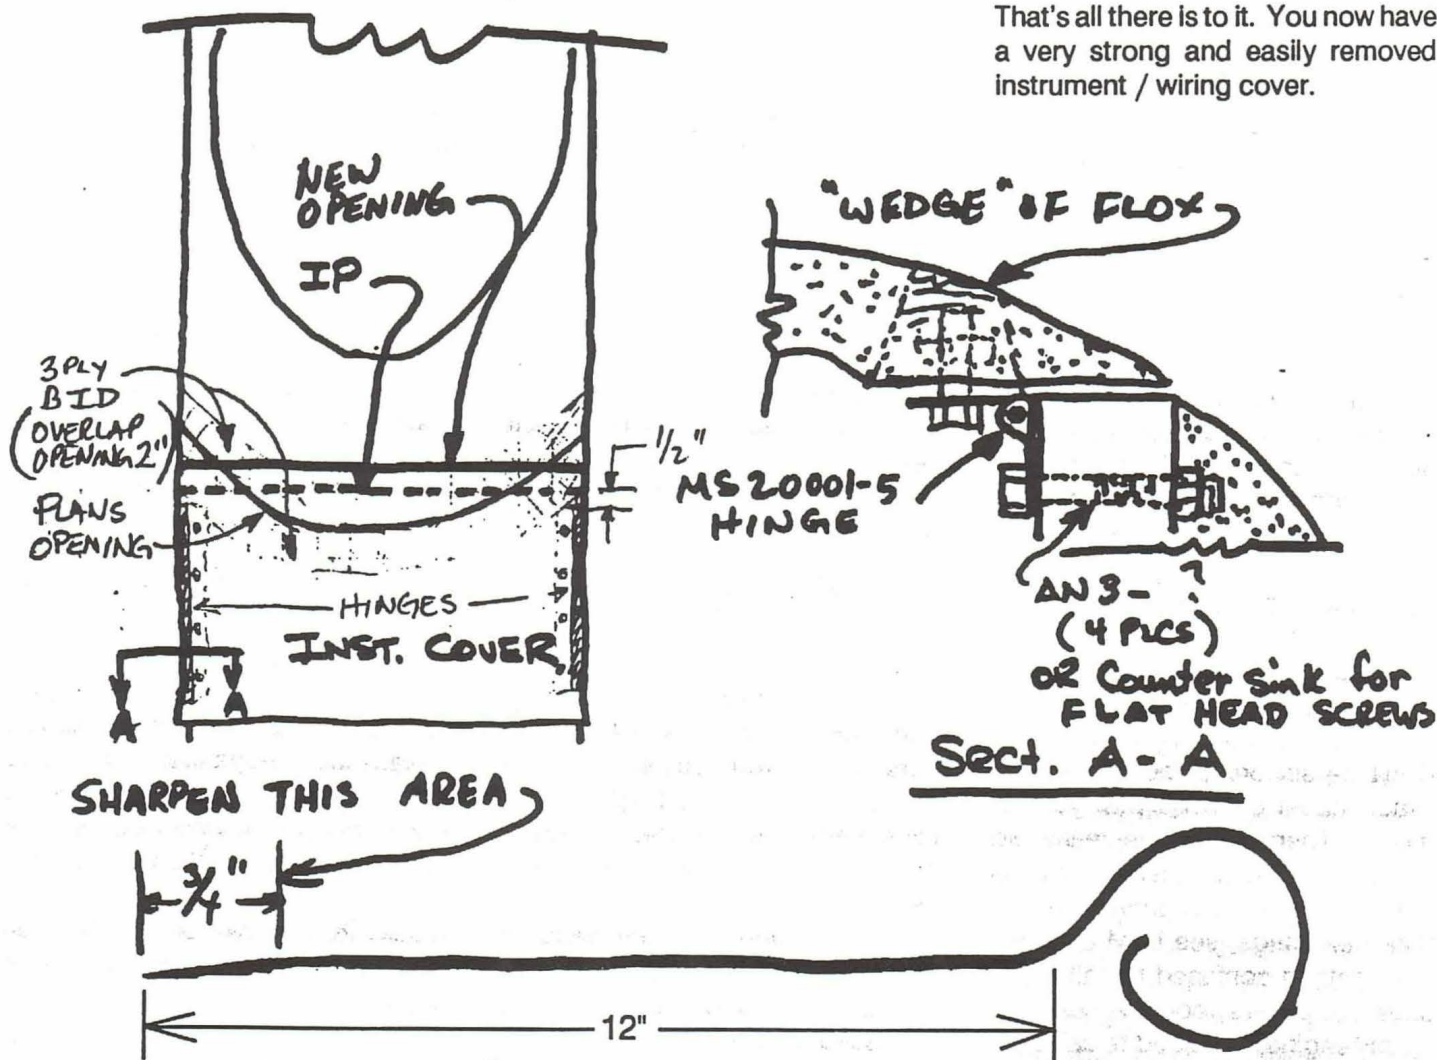 That's all there is to it. You now have
a very strong and easily removed
instrument / wiring cover.
NEW
OPENING
IP
3 PLY
BID
(OVERLAP
OPENING 2")
PLANS
OPENING
1/2"
HINGES
INST. COVER
A
A
"WEDGE" OF FLOX
MS20001-5
HINGE
AN 3- ?
(4 PLCS)
OR Counter sink for
FLAT HEAD SCREWS
Sect. A-A
SHARPEN THIS AREA
3/4"
12"